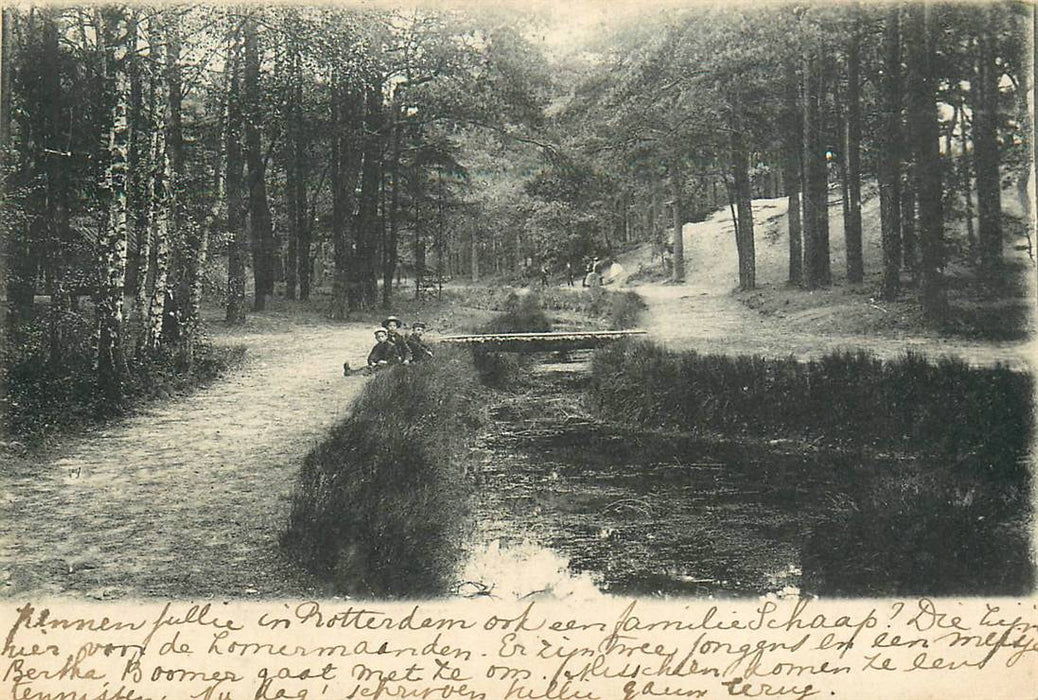 Kennen jullie in Rotterdam ook een familie Schaap? Die zijn
hier voor de zomermaanden. Er zijn twee jongens en een meisje
Bertha Boomer gaat met ze om. Misschien komen ze eens
tennissen. Nu dag! schrijven jullie gauw terug.